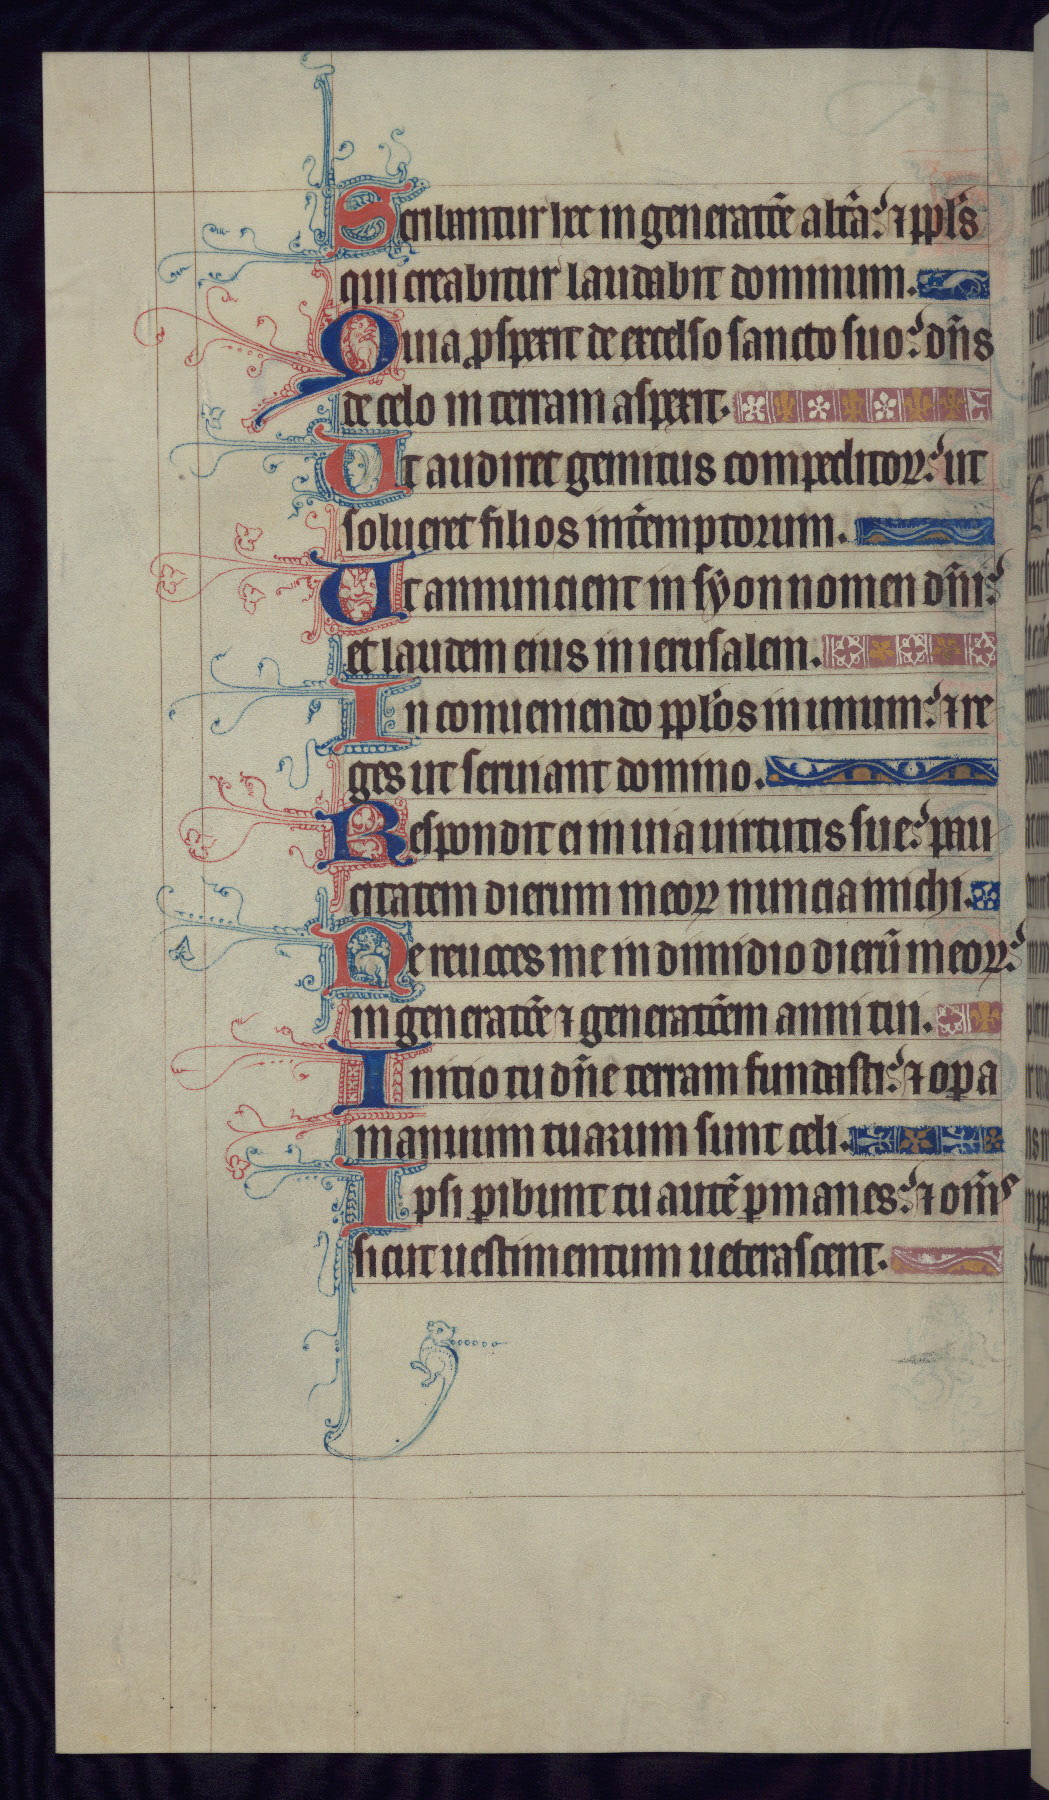 Scribantur hec in generatiōe altā: ⁊ ppl's
qui creabitur laudabit dominum.
Quia ꝓspexit de excelso sancto suo: dn̄s
de celo in terram aspexit.
Ut audiret gemitus compeditoꝝ: ut
solueret filios int̄emptorum.
Ut annuncient in syon nomen dn̄i:
et laudem eius in ierusalem.
In conueniendo ppl'os in unum: ⁊ re
ges ut seruiant domino.
Respondit ei in uia uirtutis sue: pau
citatem dierum meoꝝ nuncia michi.
Ne reuoces me in dimidio dierū meoꝝ:
in generatiōe ⁊ generatiōem anni tui.
Initio tu dn̄e terram fundasti: ⁊ opa
manuum tuarum sunt celi.
Ipsi ꝑibunt tu autē ꝑmanes: ⁊ om̄s
sicut uestimentum ueterascent.